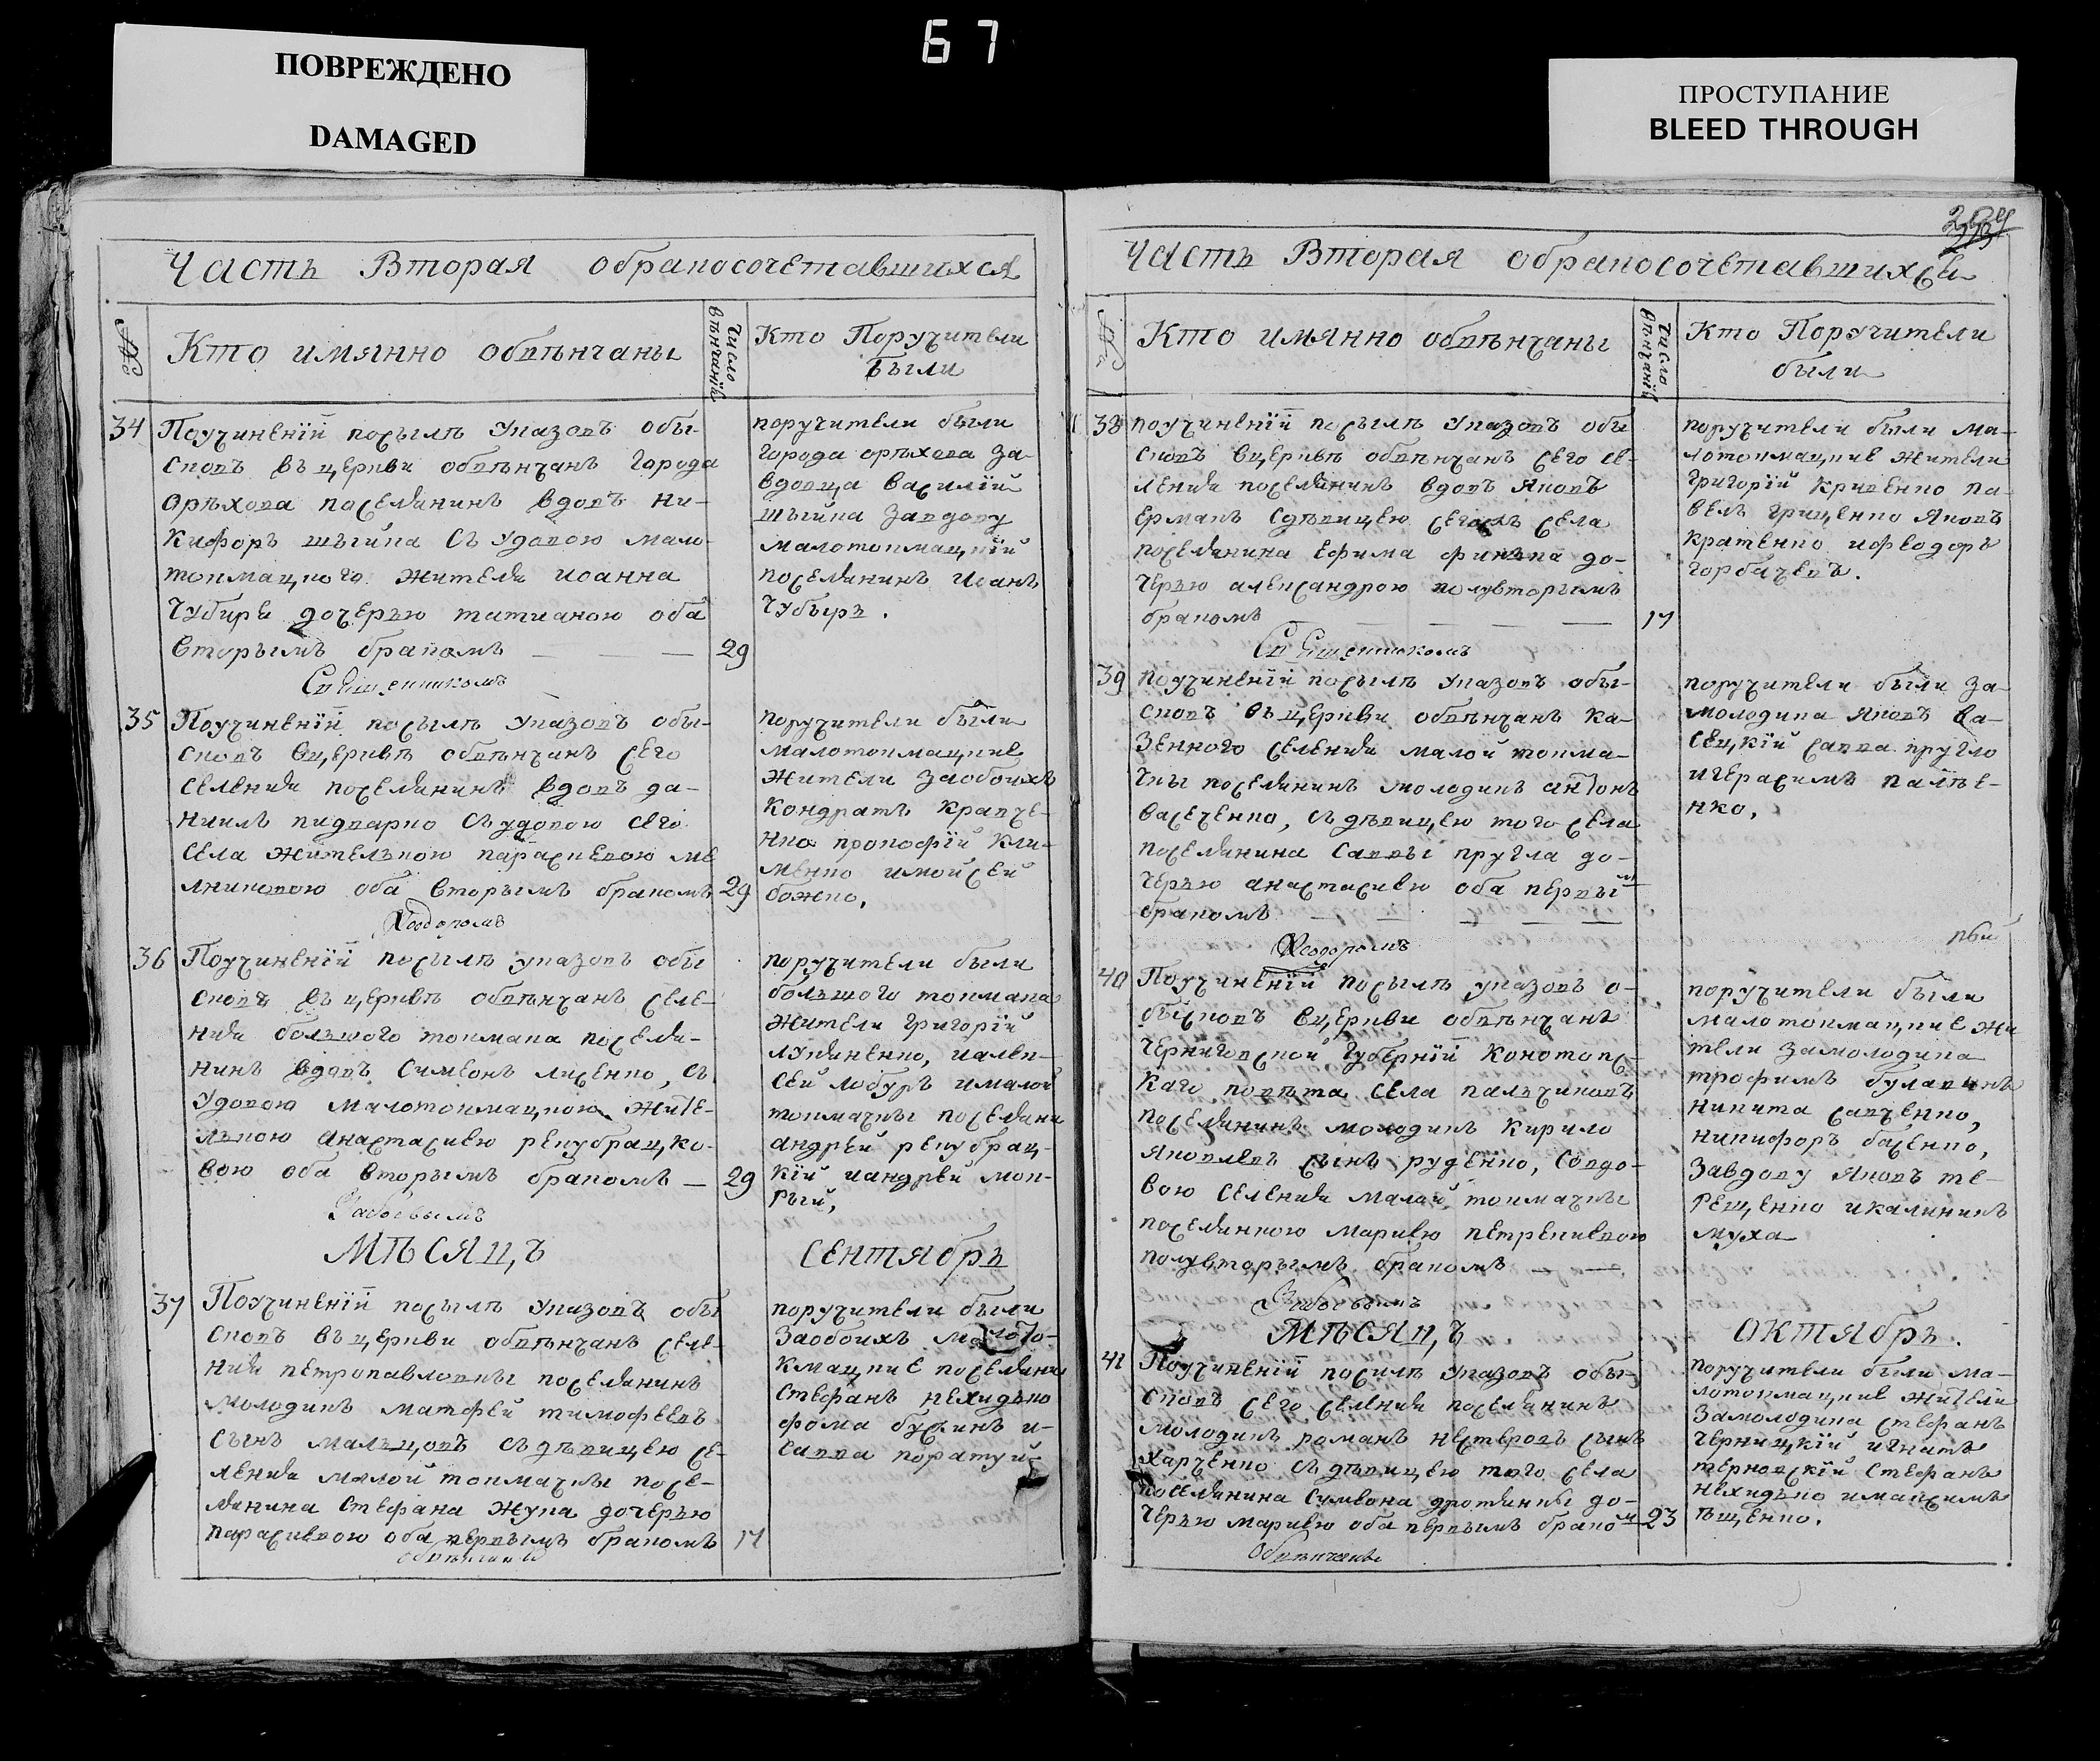 67
ПОВРЕЖДЕНО
DAMAGED
ПРОСТУПАНИЕ
BLEED THROUGH
Часть Вторая обракосочетавшихся
№
Кто имянно обвѣнчаны
Число вѣнчаній
Кто Поручители
были
34
Поучиненій посылѣ указовъ обы-
сковъ въ церкви обвѣнчанъ города
орѣхова поселянинъ вдовъ Ни-
кифоръ шыйка съ удовою мало-
токмацкого жителя иоанна
Чубиря дочерью татианою оба
вторымъ бракомъ
29
Священникомъ
поручители были
города орѣхова за-
вдовца василій
шыйка завдову
малотокмацкій
поселянинъ иоанъ
Чубырь.
35
Поучиненій посылѣ указовъ обы-
сковъ вцерквѣ обвѣнчанъ сего
селения поселянинъ вдовъ да-
ниилъ пидварко съ удовою сего
села жителькою параскевою ме
лниковою оба вторымъ бракомъ
29
Феодоромъ
поручители были
малотокмацкие
жители заобоихъ
Кондратъ Кравче-
нко прокофій Кли-
менко имойсей
божко.
36
Поучиненій посылѣ указовъ обы
сковъ въ церквѣ обвѣнчанъ селе-
ния большого токмака поселя-
нинъ вдовъ Симеонъ лисенко, съ
удовою малотокмацкою жите-
лькою анастасиею рекубрацко-
вою оба вторымъ бракомъ
29
поручители были
большого токмака
жители григорій
лукяненко, иалек-
сей лобуръ ималой
токмачки поселяни
андрей рекубрац-
кій иандрей мок-
рый,
МѢСЯЦЪ
СЕНТЯбрь
37
Поучиненій посылѣ указовъ обы
сковъ въ церкви обвѣнчанъ селе-
ния петропавловки поселянинъ
молодикъ матфей тимофеевъ
сынъ мальцовъ съ дѣвицею се-
ления малой токмачки посе-
лянина стефана жука дочерью
параскевою оба первымъ бракомъ
17
обвѣнчаны
поручители были
заобоихъ малото-
кмацкие поселяни
стефанъ нехидько
фома бусинъ и-
савва коратуй
Часть Вторая обракосочетавшихся
№
Кто имянно обвѣнчаны
Число вѣнчаній
Кто Поручители
были
38
поучиненій посылѣ указовъ обы
сковъ вцерквѣ обвѣнчанъ сего се-
ления поселянинъ вдовъ Яковъ
Ермакъ сдѣвицею сегожъ села
поселянина ефима до-
черью александрою полувторымъ
бракомъ
17
Священникомъ
поручители были ма-
лотокмацкие жители
григорій Кривенко па-
велъ гриценко Яковъ
Кратенко ифеодоръ
горбачевъ.
39
поучиненій посылѣ указовъ обы-
сковъ въ церкви обвѣнчанъ ка-
зенного селения малой токма-
чки поселянинъ молодикъ антонъ
васеченко, съ дѣвицею того села
поселянина саввы кругла до-
черью анастасиею оба первы м
бракомъ
Феодоромъ
поручители были за-
молодика Яковъ са-
сецкій савва кругло
игерасимъ палѣе-
нко,
40
Поучиненій посылѣ указовъ о-
бысковъ вцеркви обвѣнчанъ
черниговской губерній Конотопс-
каго повѣта села пальчиковъ
поселянинъ молодикъ Кирило
Яковлевъ сынъ руденко, совдо-
вою селения малой токмачки
поселянкою мариею петренковою
полувторымъ бракомъ
поручители были
малотокмацкие жи
тели замолодика
трофимъ булавинъ
никита савченко,
никифоръ басенко,
завдову Яковъ те-
рещенко икалиникъ
муха
МѢСЯЦЪ
ОКТЯбрь.
41
Поучиненій посилѣ указовъ обы-
сковъ сего селения поселянинъ
молодикъ романъ нестеровъ сынъ
Харченко съ дѣвицею того села
поселянина симеона дротянки до-
черью мариею оба первымъ браком
23
Обвѣнчаны
поручители были ма-
лотокмацкие жители
замолодика стефанъ
черницкій игнатъ
терновскій стефанъ
нехидько имаксимъ
ѣщенко.